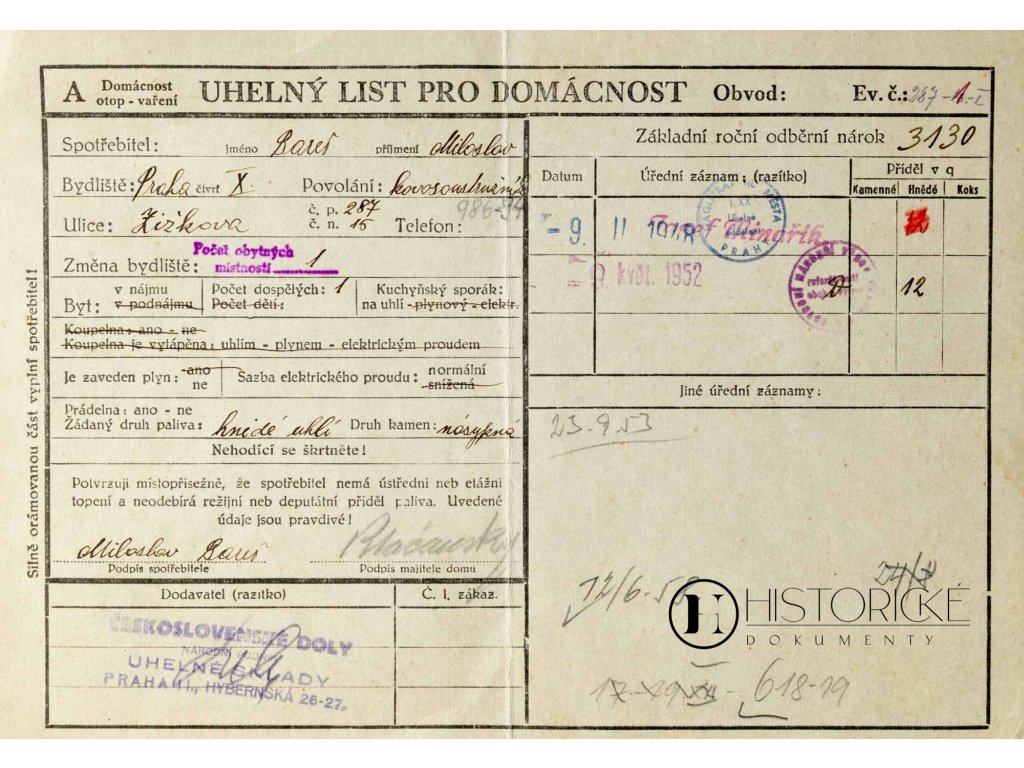 A Domácnost otop - vaření UHELNÝ LIST PRO DOMÁCNOST Obvod: Ev. č.: 287-1-I
Spotřebitel: jméno Bareš příjmení Miloslav
Bydliště: Praha čtvrť X. Povolání:
Ulice: Žižkova č. p. 287 č. n. 15 Telefon: 986-94
Změna bydliště: Počet obytných místností 1
Byt: v nájmu v podnájmu Počet dospělých: 1 Počet dětí: Kuchyňský sporák: na uhlí - plynový - elektr.
Koupelna: ano - ne
Koupelna je vytápěna: uhlím - plynem - elektrickým proudem
Je zaveden plyn: ano ne Sazba elektrického proudu: normální snížená
Prádelna: ano - ne
Žádaný druh paliva: hnědé uhlí Druh kamen: násypná
Nehodící se škrtněte!
Potvrzuji místopřísežně, že spotřebitel nemá ústřední neb etážní
topení a neodebírá režijní neb deputátní příděl paliva. Uvedené
údaje jsou pravdivé!
Miloslav Bareš
Podpis spotřebitele Podpis majitele domu
Dodavatel (razítko) Č. l. zákaz.
ČESKOSLOVENSKÉ DOLY
NÁRODNÍ PODNIK
UHELNÉ SKLADY
PRAHA II., HYBERNSKÁ 26-27.
Silně orámovanou část vyplní spotřebitel!
Základní roční odběrní nárok 3130
Datum Úřední záznam: (razítko) Příděl v q
Kamenné Hnědé Koks
- 9 II
Josef Minařík
9 květ. 1952
12
Jiné úřední záznamy:
23.9.53
12/6.53
24/X
17-19 XII - 618-19
HISTORICKÉ
DOKUMENTY